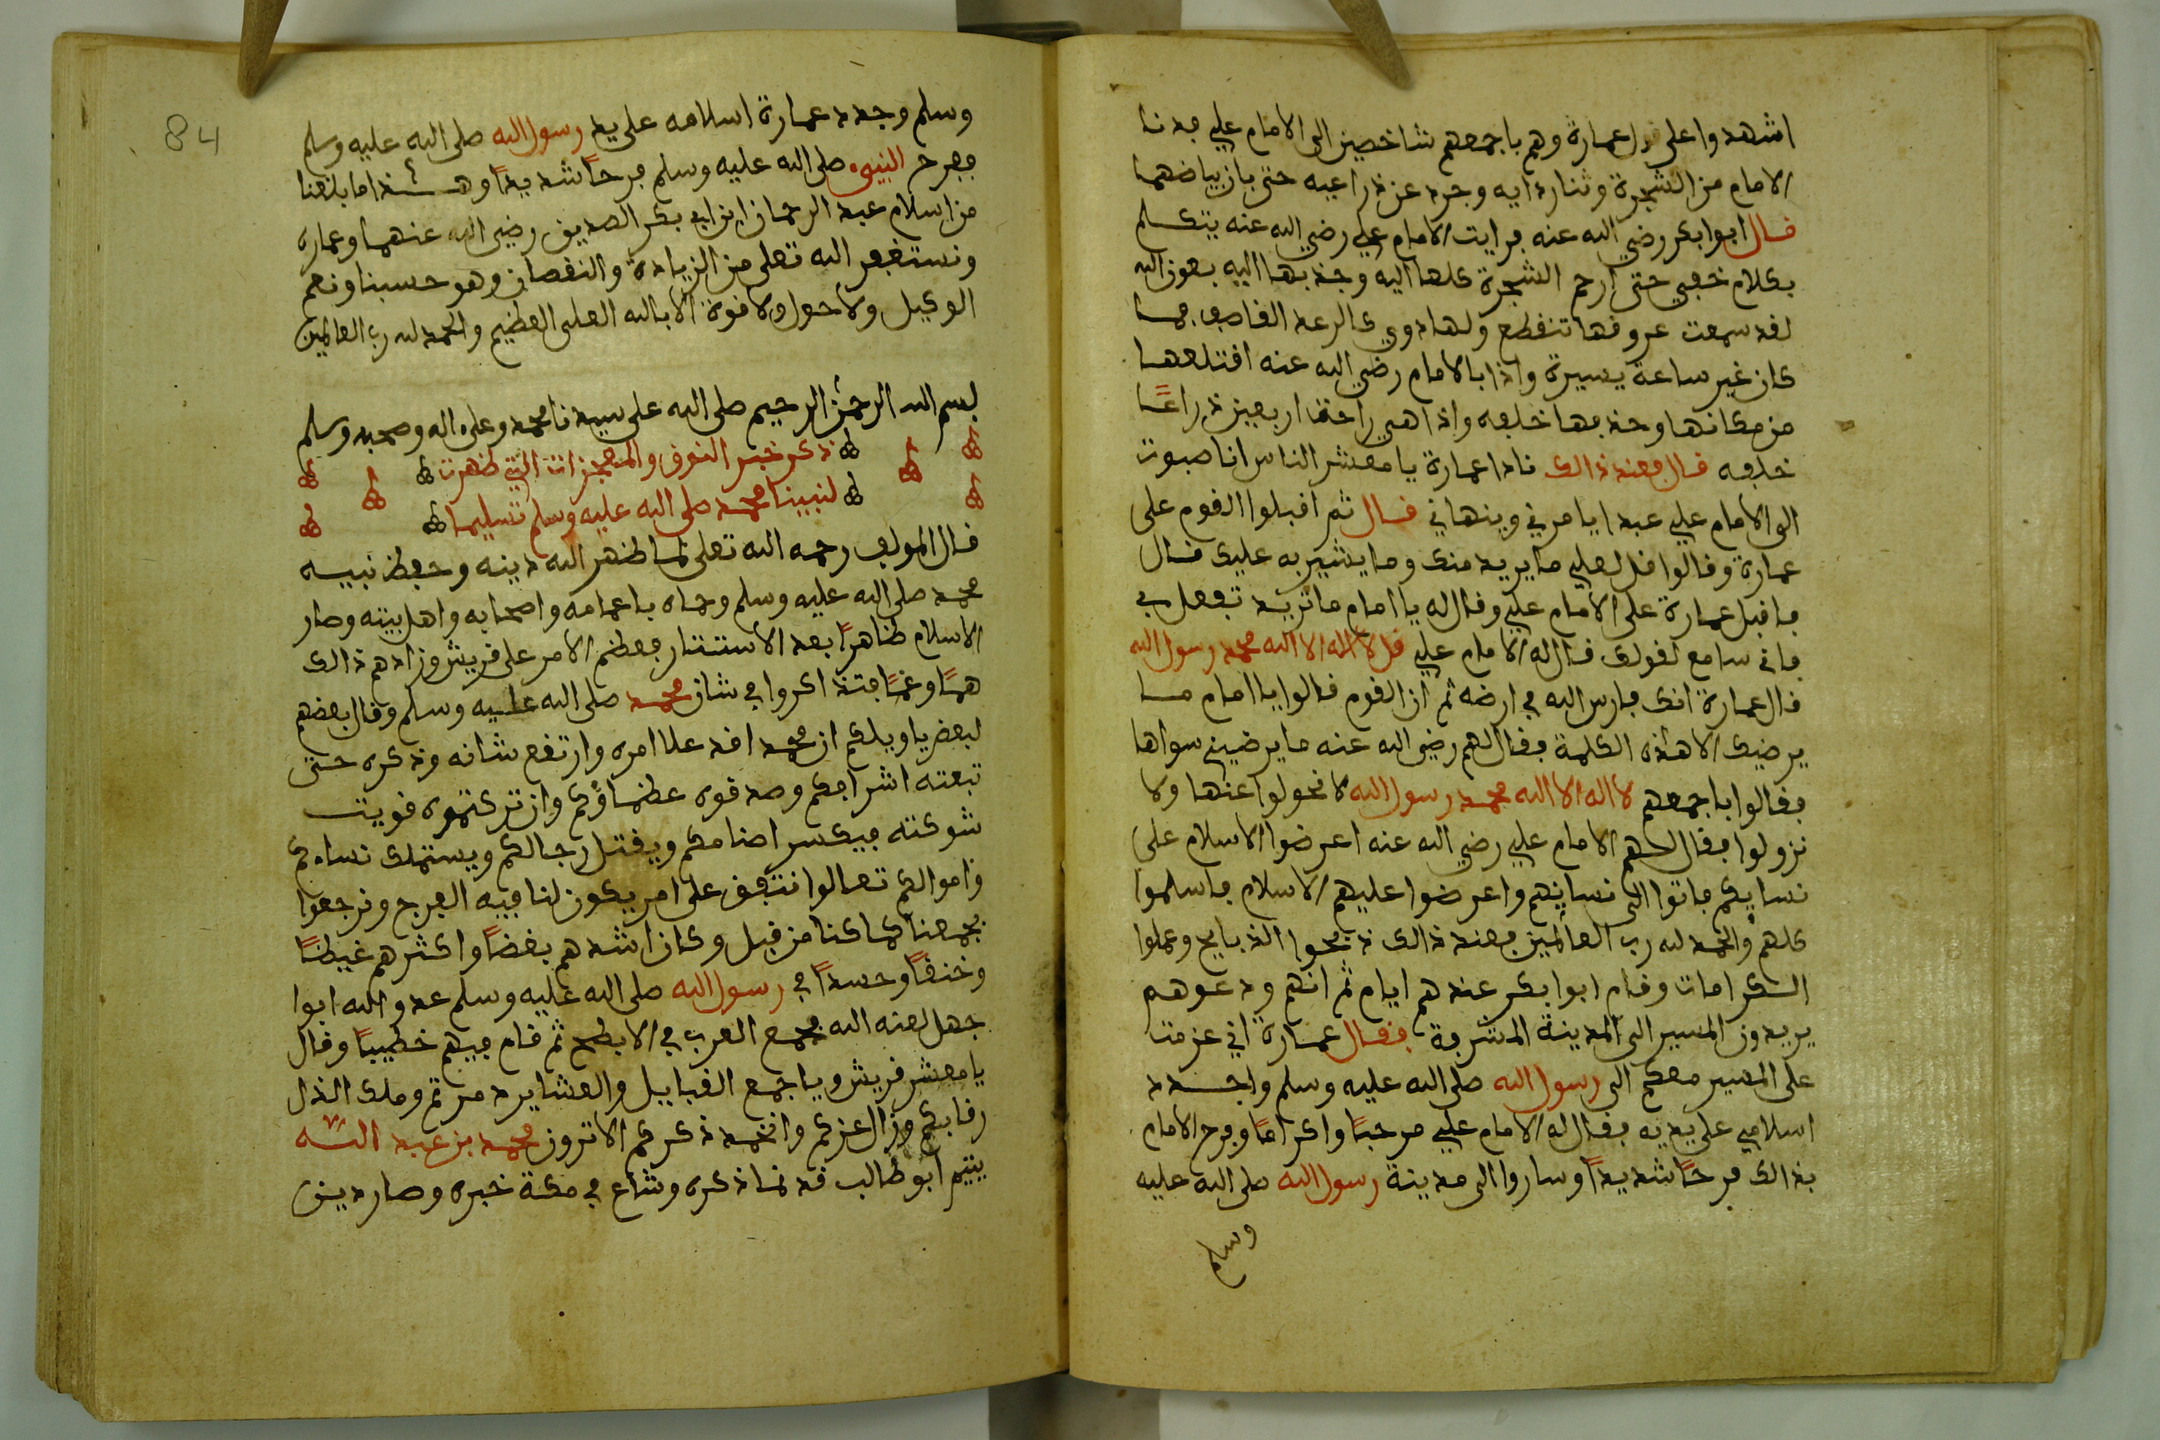 اشهدوا على قول عمارة وهم باجمعهم شاخصين الى الامام علي فدنا
الامام من الشجرة وثنا رداءيه وجرد عن ذراعيه حتى بان بياضهما
قال ابوا بكر رضي الله عنه فرايت الامام علي رضي الله عنه يتكلم
بكلام خفي حتى ارم الشجرة كلها اليه وجذبها اليه بعون الله
لقد سمعت عروقها تنقطع ولها دوي كالرعد القاصف فما
كان غير ساعة يسيرة واذا بالامام رضي الله عنه اقتلعها
من مكانها وحذفها خلفه واذا هي راحت اربعين ذراعًا
خلفه قال فعند ذالك نادا عمارة يا معشر الناس انا صبوت
الى الامام علي عبدا يامرني وينهاني قال ثم اقبلوا القوم على
عمارة وقالوا قل لعلي ما يريد منك وما يشير به عليك قال
فاقبل عمارة على الامام علي وقال له يا امام ما تريد تفعل بي
فاني سامع لقولك قال له الامام علي قل لا اله الا الله محمد رسول الله
قال عمارة انك فارس الله في ارضه ثم ان القوم قالوا يا امام ما
يرضيك الا هذه الكلمة فقال لهم رضي الله عنه ما يرضيني سواها
فقالوا باجمعهم لا اله الا الله محمد رسول الله لا نحولوا عنها ولا
نزولوا فقال لهم الامام علي رضي الله عنه اعرضوا الاسلام على
نسايكم فاتوا الى نسايهم واعرضوا عليهم الاسلام فاسلموا
كلهم والحمد لله رب العالمين فعند ذالك ذبحوا الذبايح وعملوا
الكرامات وقام ابوا بكر عندهم ايام ثم انهم ودعوهم
يريدون المسير الى المدينة المشرفة فقال عمارة اني عزمت
على المسير معكم الى رسول الله صلى الله عليه وسلم واجدد
اسلامي على يديه فقال له الامام علي مرحبًا واكرامًا وفرح الامام
بذالك فرحًا شديدًا وساروا الى مدينة رسول الله صلى الله عليه
وسلم
84
وسلم وجدد عمارة اسلامه على يد رسول الله صلى الله عليه وسلم
ففرح النبيء صلى الله عليه وسلم فرحًا شديدًا وهذا ما بلغنا
من اسلام عبد الرحمان ابن ابي بكر الصديق رضي الله عنهما وعماره
ونستغفر الله تعلى من الزيادة والنقصان وهو حسبنا ونعم
الوكيل ولا حول ولا قوة الا بالله العلى العظيم والحمد لله رب العالمين
بسم الله الرحمن الرحيم صلى الله على سيدنا محمد وعلى اله وصحبه وسلم
ذكر خبر النوق والمعجزات التي ظهرت
لنبينا محمد صلى الله عليه وسلم تسليما
قال المولف رحمه الله تعلى لما ظهر الله دينه وحفظ نبيه
محمد صلى الله عليه وسلم وحماه باعمامه واصحابه واهل بيته وصار
الاسلام ظاهرًا بعد الاستتار فعظم الامر على قريش وزادهم ذالك
همًا وغمًا فتذاكروا في شان محمد صلى الله عليه وسلم وقال بعضهم
لبعض يا ويلكم ان محمد اقد علا امره وارتفع شانه وذكره حتى
تبعته اشرافكم وصدقوه عظماؤكم وان تركتموه قويت
شوكته فيكسر اصنامكم ويقتل رجالكم ويستملك نساءكم
واموالكم تعالوا نتفق على امر يكون لنا فيه الفرج ونرجعوا
بجمعنا كما كنا من قبل وكان اشدهم بغضًا واكثرهم غيظًا
وخنقًا وحسدًا في رسول الله صلى الله عليه وسلم عدو الله ابوا
جهل لعنه الله فجمع العرب في الابطح ثم قام فيهم خطيبًا وقال
يا معشر قريش ويا جمع القبايل والعشاير دمرتم وملك الذل
رقابكم وزال عزكم وانخمد ذكركم الا ترون محمد بن عبد الله
يتيم ابو طالب قد نما ذكره وشاع في مكة خبره وصار دين